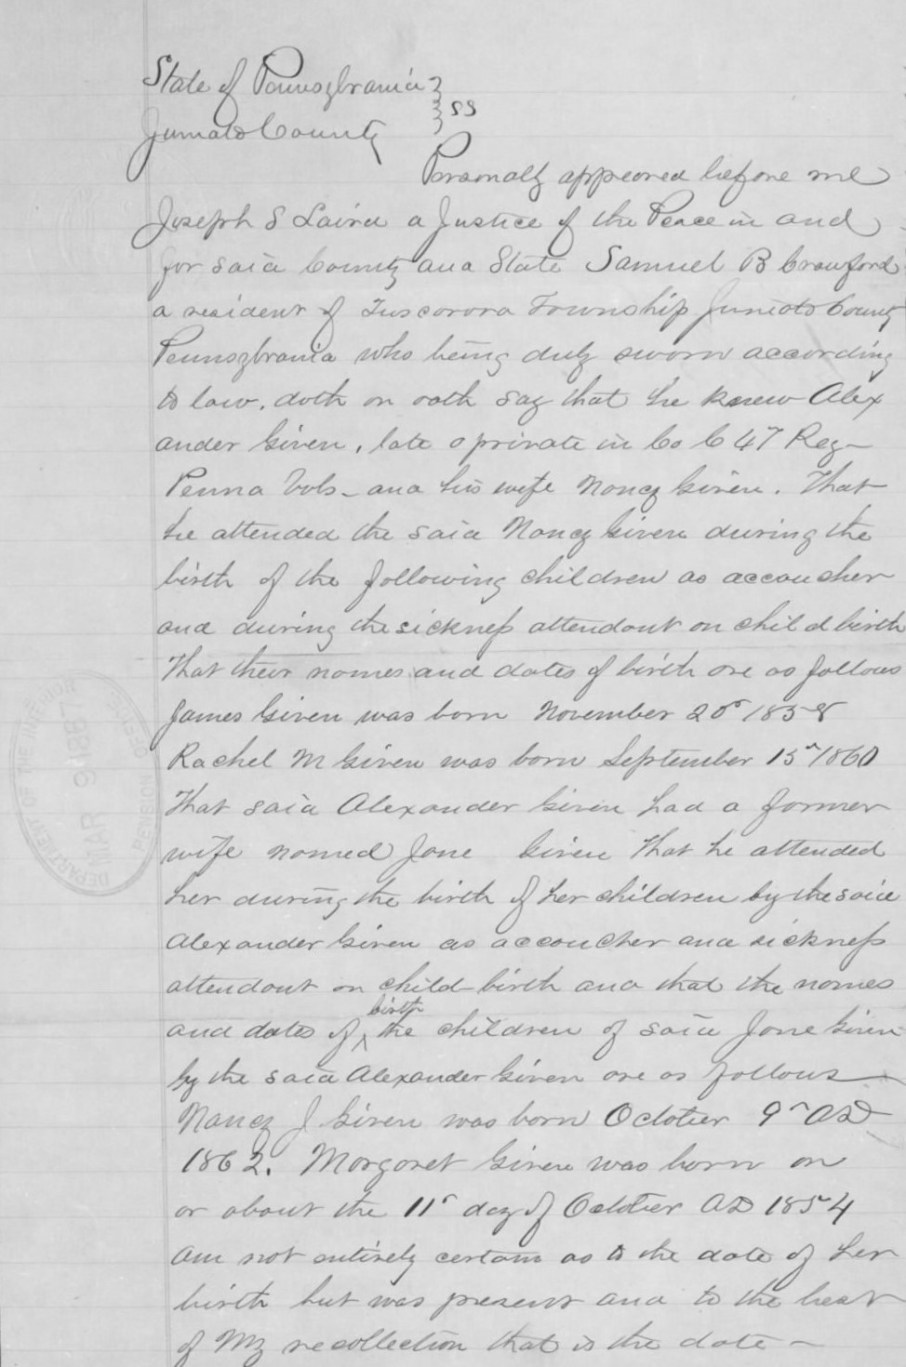 State of Pennsylvania }
Juniata County } SS
Personally appeared before me
Joseph S Laird a Justice of the Peace in and
for said County and State Samuel B Crawford
a resident of Tuscorora Township Juniata County
Pennsylvania who being duly sworn according
to law, doth on oath say that he knew Alex
ander Given, late a private in Co C 47 Reg-
Penna Vols- and his wife Nancy Given. That
he attended the said Nancy Given during the
birth of the following children as accoucher
and during the sickness attendant on child birth
That their names and dates of birth are as follows
James Given was born November 20" 1858
Rachel M Given was born September 15" 1860
That said Alexander Given had a former
wife named Jane Given That he attended
her during the birth of her children by the said
Alexander Given as accoucher and sickness
attendant on child-birth and that the names
and dates of ^birth the children of said Jane Given
by the said Alexander Given are as follows
Nancy J Given was born October 9" AD
1862. Margaret Given was born on
or about the 11" day of October AD 1854
am not entirely certain as to the date of her
birth but was present and to the best
of my recollection that is the date -
DEPARTMENT OF THE INTERIOR
MAR 9 1887
PENSION OFFICE